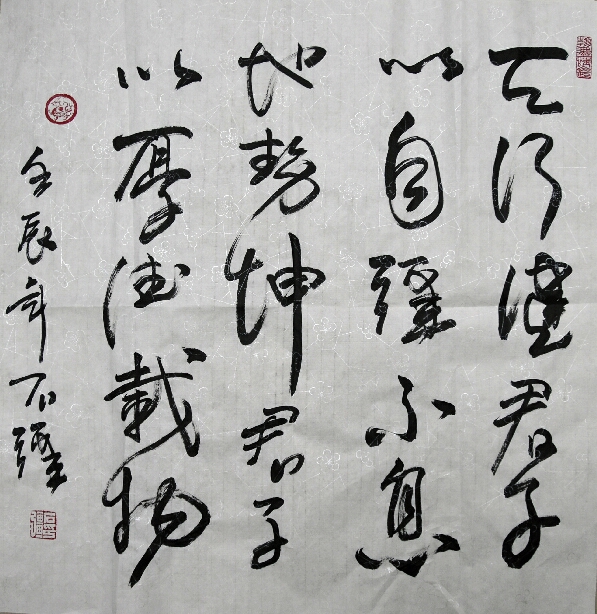 天行健君子
以自强不息
地势坤君子
以厚德载物
壬辰年石强